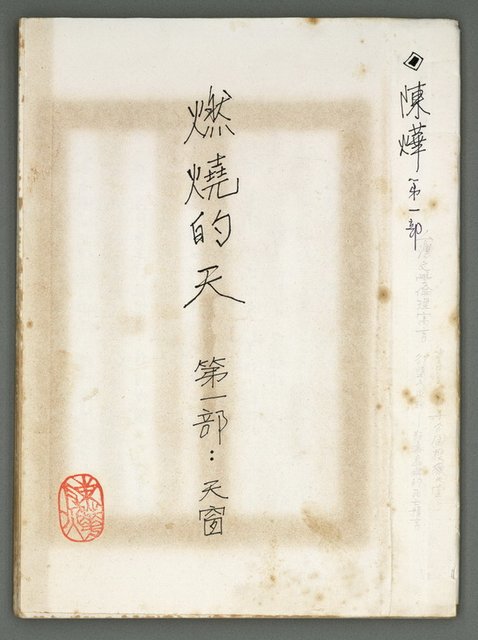 陳燁 第一部
燃燒的天
第一部：天窗
陳燁